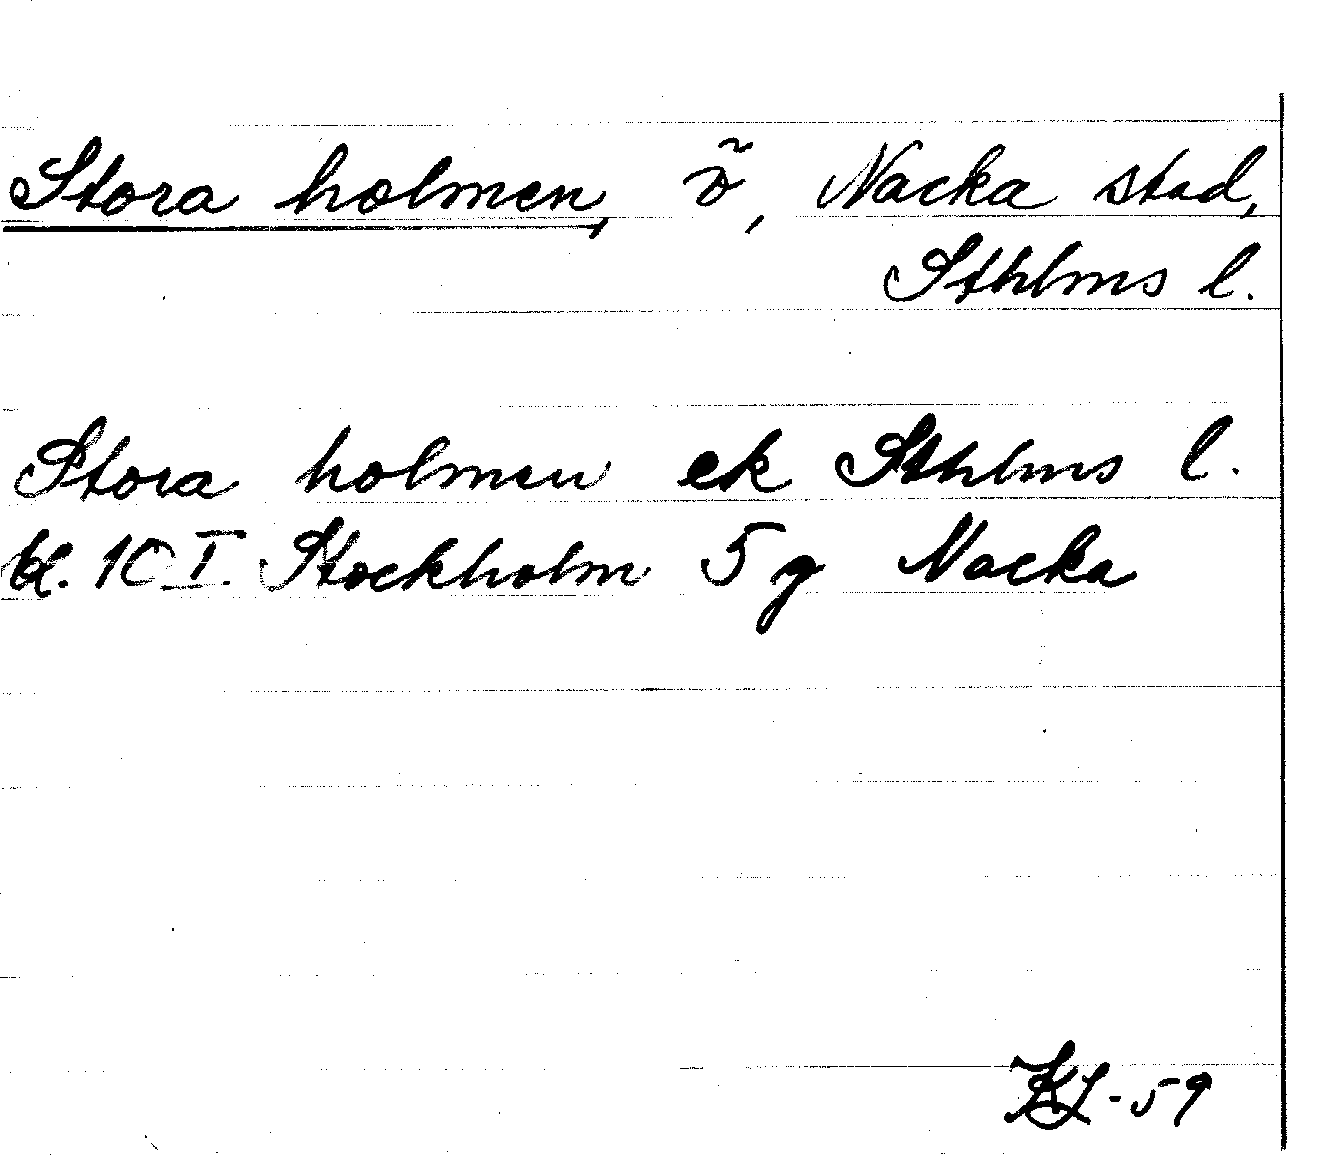 Stora holmen, ö, Nacka stad,
Sthlms l.
Stora holmen ek Sthlms l.
bl. 10 I Stockholm 5 g Nacka
KL-59